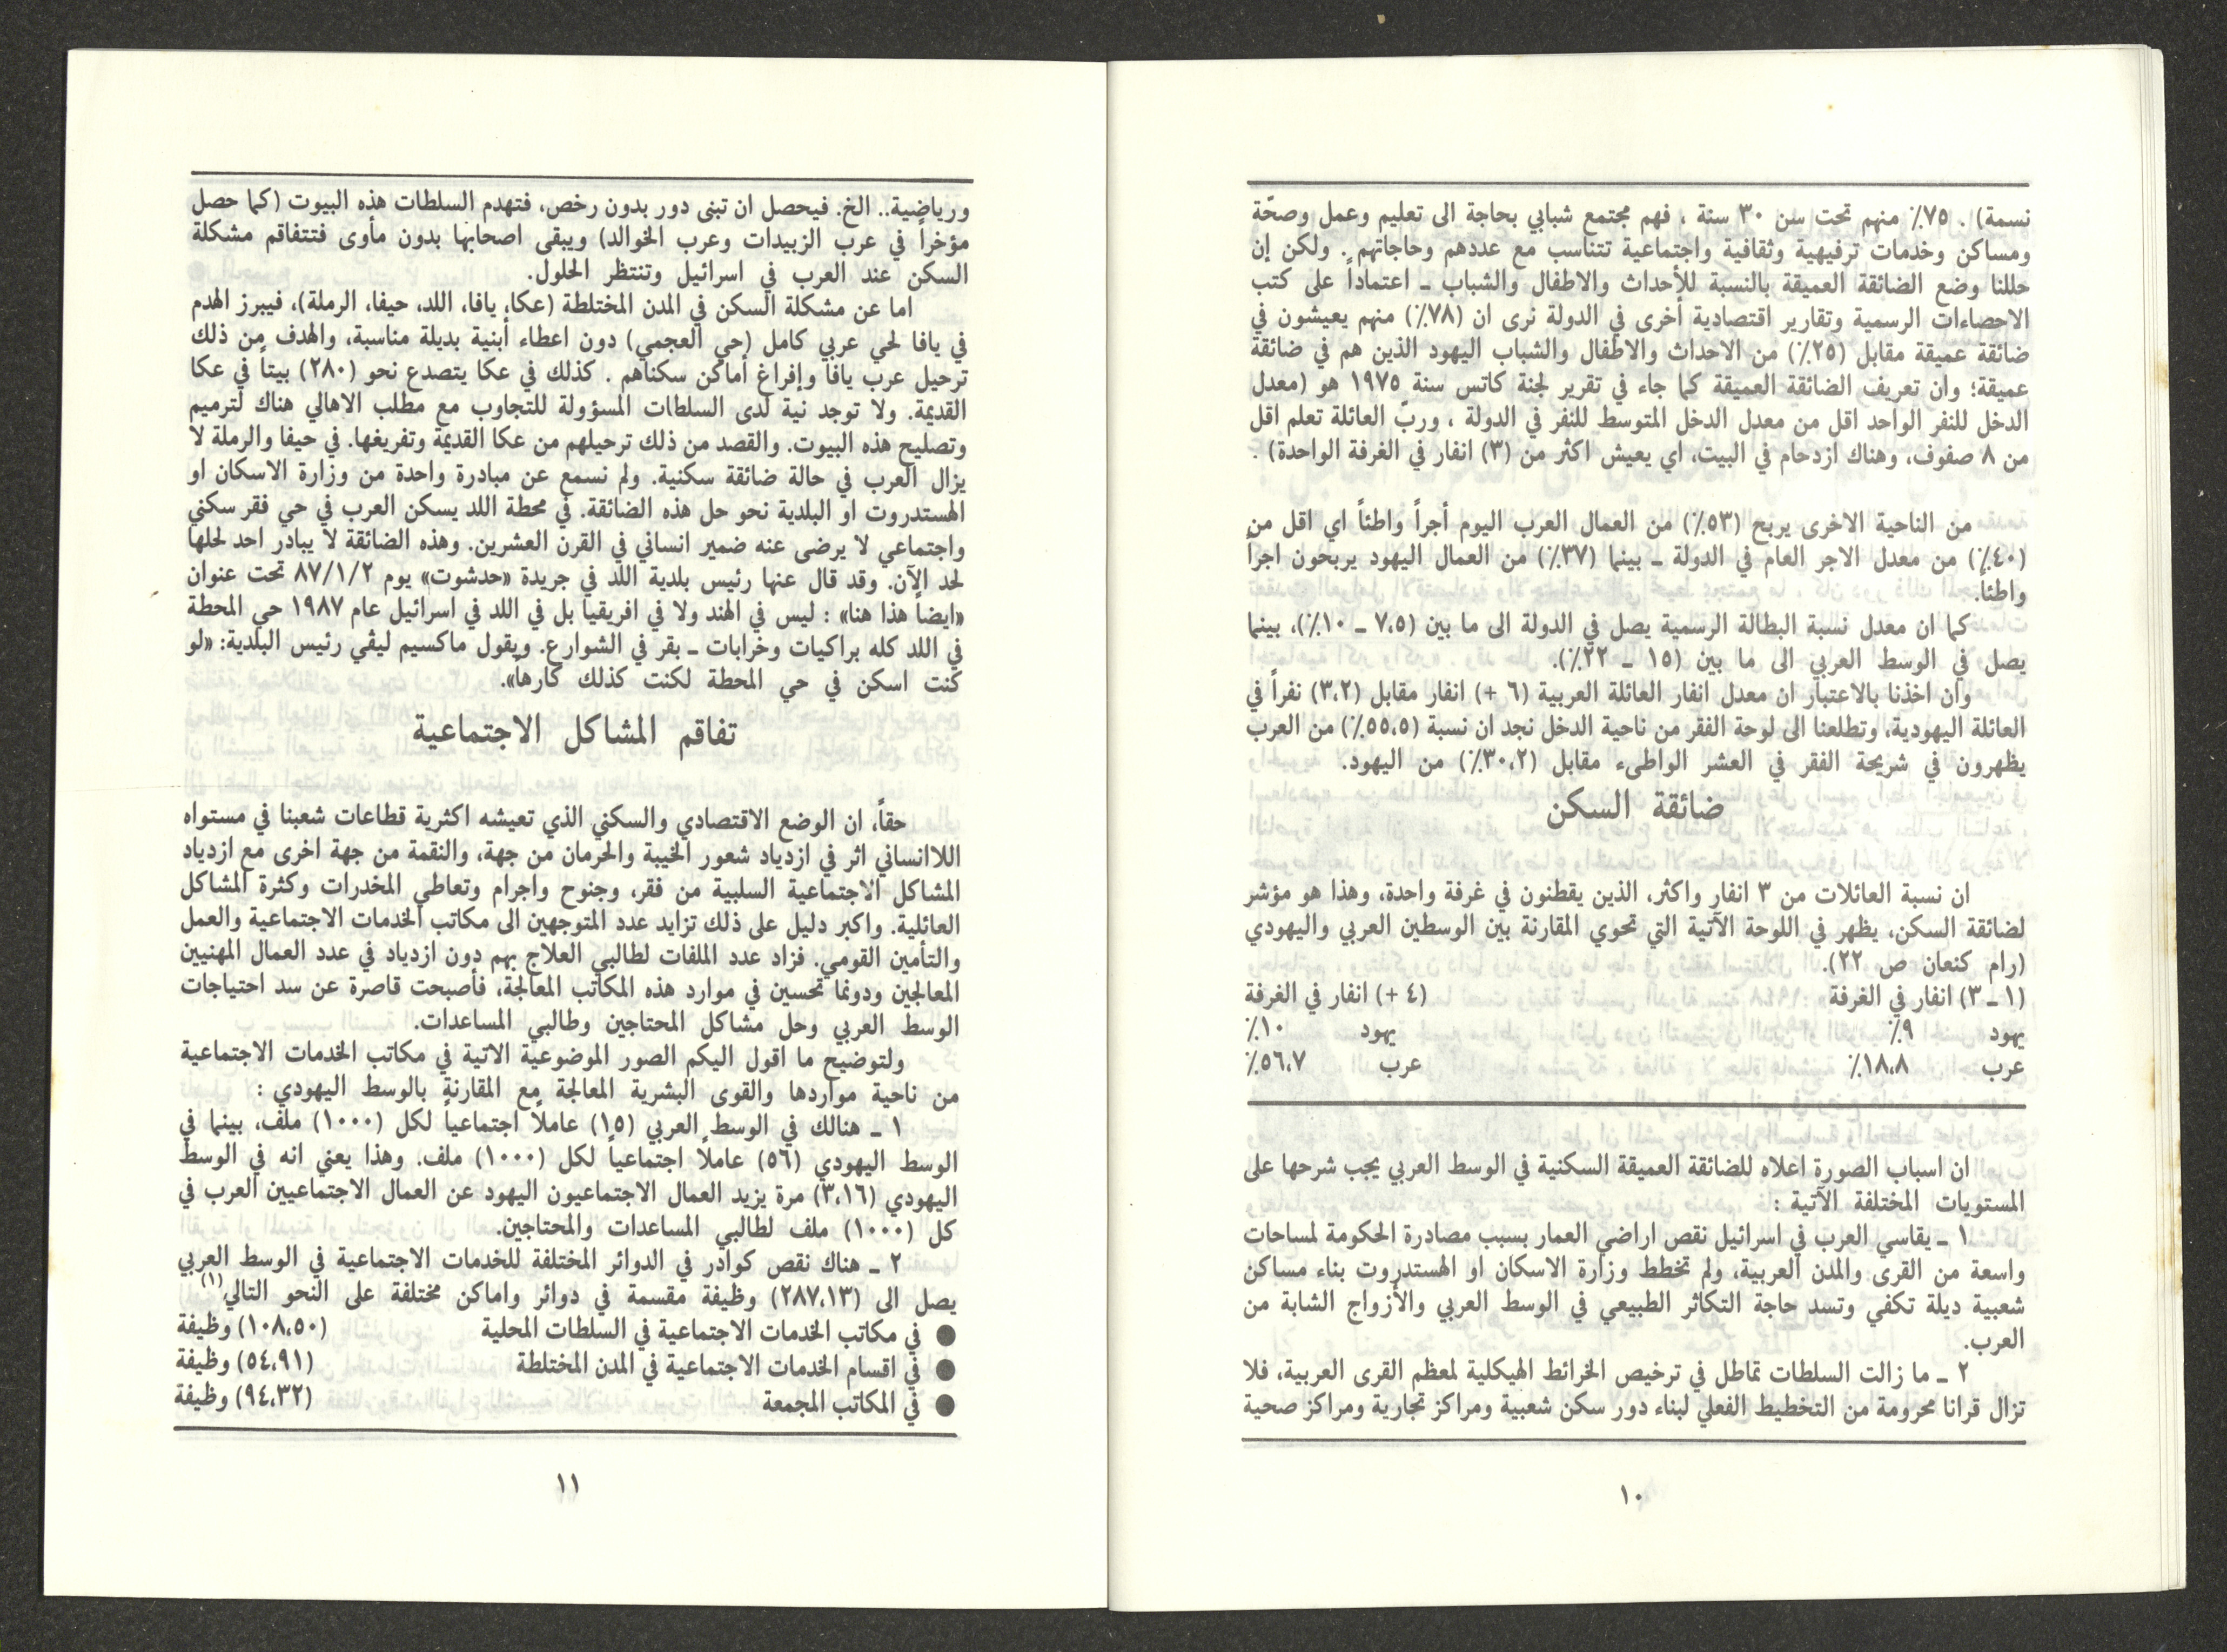 نسمة) . ٧٥٪ منهم تحت سن ٣٠ سنة ، فهم مجتمع شبابي بحاجة الى تعليم وعمل وصحّة
ومساكن وخدمات ترفيهية وثقافية واجتماعية تتناسب مع عددهم وحاجاتهم . ولكن إن
حللنا وضع الضائقة العميقة بالنسبة للأحداث والاطفال والشباب ـ اعتماداً على كتب
الاحصاءات الرسمية وتقارير اقتصادية أخرى في الدولة نرى ان (٧٨٪) منهم يعيشون في
ضائقة عميقة مقابل (٢٥٪) من الاحداث والاطفال والشباب اليهود الذين هم في ضائقة
عميقة؛ وان تعريف الضائقة العميقة كما جاء في تقرير لجنة كاتس سنة ١٩٧٥ هو (معدل
الدخل للنفر الواحد اقل من معدل الدخل المتوسط للنفر في الدولة ، وربّ العائلة تعلم اقل
من ٨ صفوف، وهناك ازدحام في البيت، اي يعيش اكثر من (٣) انفار في الغرفة الواحدة) .
من الناحية الاخرى يربح (٥٣٪) من العمال العرب اليوم أجراً واطئاً اي اقل من
(٤٠٪) من معدل الاجر العام في الدولة ـ بينما (٣٧٪) من العمال اليهود يربحون اجراً
واطئا.
كما ان معدل نسبة البطالة الرسمية يصل في الدولة الى ما بين (٧،٥ ـ ١٠٪)، بينما
يصل في الوسط العربي الى ما بين (١٥ ـ ٢٢٪).
وان اخذنا بالاعتبار ان معدل انفار العائلة العربية (٦ +) انفار مقابل (٣،٢) نفراً في
العائلة اليهودية، وتطلعنا الى لوحة الفقر من ناحية الدخل نجد ان نسبة (٥٥،٥٪) من العرب
يظهرون في شريحة الفقر في العشر الواطىء مقابل (٣٠،٢٪) من اليهود.
ضائقة السكن
ان نسبة العائلات من ٣ انفار واكثر، الذين يقطنون في غرفة واحدة، وهذا هو مؤشر
لضائقة السكن، يظهر في اللوحة الآتية التي تحوي المقارنة بين الوسطين العربي واليهودي
(رام كنعان ص ٢٢).
(١ ـ ٣) انفار في الغرفة (٤ +) انفار في الغرفة
يهود ٩٪ يهود ١٠٪
عرب ١٨،٨٪ عرب ٥٦،٧٪
ان اسباب الصورة اعلاه للضائقة العميقة السكنية في الوسط العربي يجب شرحها على
المستويات المختلفة الآتية :
١ ـ يقاسي العرب في اسرائيل نقص اراضي العمار بسبب مصادرة الحكومة لمساحات
واسعة من القرى والمدن العربية، ولم تخطط وزارة الاسكان او الهستدروت بناء مساكن
شعبية ديلة تكفي وتسد حاجة التكاثر الطبيعي في الوسط العربي والأزواج الشابة من
العرب.
٢ ـ ما زالت السلطات تماطل في ترخيص الخرائط الهيكلية لمعظم القرى العربية، فلا
تزال قرانا محرومة من التخطيط الفعلي لبناء دور سكن شعبية ومراكز تجارية ومراكز صحية
١٠
ورياضية.. الخ. فيحصل ان تبنى دور بدون رخص، فتهدم السلطات هذه البيوت (كما حصل
مؤخراً في عرب الزبيدات وعرب الخوالد) ويبقى اصحابها بدون مأوى فتتفاقم مشكلة
السكن عند العرب في اسرائيل وتنتظر الحلول.
اما عن مشكلة السكن في المدن المختلطة (عكا، يافا، اللد، حيفا، الرملة)، فيبرز الهدم
في يافا لحي عربي كامل (حي العجمي) دون اعطاء أبنية بديلة مناسبة، والهدف من ذلك
ترحيل عرب يافا وإفراغ أماكن سكناهم . كذلك في عكا يتصدع نحو (٢٨٠) بيتاً في عكا
القديمة. ولا توجد نية لدى السلطات المسؤولة للتجاوب مع مطلب الاهالي هناك لترميم
وتصليح هذه البيوت. والقصد من ذلك ترحيلهم من عكا القديمة وتفريغها. في حيفا والرملة لا
يزال العرب في حالة ضائقة سكنية. ولم نسمع عن مبادرة واحدة من وزارة الاسكان او
الهستدروت او البلدية نحو حل هذه الضائقة. في محطة اللد يسكن العرب في حي فقر سكني
واجتماعي لا يرضى عنه ضمير انساني في القرن العشرين. وهذه الضائقة لا يبادر احد لحلها
لحد الآن. وقد قال عنها رئيس بلدية اللد في جريدة «حدشوت» يوم ٨٧/١/٢ تحت عنوان
«ايضاً هذا هنا» : ليس في الهند ولا في افريقيا بل في اللد في اسرائيل عام ١٩٨٧ حي المحطة
في اللد كله براكيات وخرابات ـ بقر في الشوارع. ويقول ماكسيم ليڤي رئيس البلدية: «لو
كنت اسكن في حي المحطة لكنت كذلك كارهاً».
تفاقم المشاكل الاجتماعية
حقاً، ان الوضع الاقتصادي والسكني الذي تعيشه اكثرية قطاعات شعبنا في مستواه
اللاانساني اثر في ازدياد شعور الخيبة والحرمان من جهة، والنقمة من جهة اخرى مع ازدياد
المشاكل الاجتماعية السلبية من فقر، وجنوح واجرام وتعاطي المخدرات وكثرة المشاكل
العائلية. واكبر دليل على ذلك تزايد عدد المتوجهين الى مكاتب الخدمات الاجتماعية والعمل
والتأمين القومي. فزاد عدد الملفات لطالبي العلاج بهم دون ازدياد في عدد العمال المهنيين
المعالجين ودونما تحسين في موارد هذه المكاتب المعالجة، فأصبحت قاصرة عن سد احتياجات
الوسط العربي وحل مشاكل المحتاجين وطالبي المساعدات.
ولتوضيح ما اقول اليكم الصور الموضوعية الاتية في مكاتب الخدمات الاجتماعية
من ناحية مواردها والقوى البشرية المعالجة مع المقارنة بالوسط اليهودي :
١ ـ هنالك في الوسط العربي (١٥) عاملاً اجتماعياً لكل (١٠٠٠) ملف، بينما في
الوسط اليهودي (٥٦) عاملاً اجتماعياً لكل (١٠٠٠) ملف. وهذا يعني انه في الوسط
اليهودي (٣،١٦) مرة يزيد العمال الاجتماعيون اليهود عن العمال الاجتماعيين العرب في
كل (١٠٠٠) ملف لطالبي المساعدات والمحتاجين.
٢ ـ هناك نقص كوادر في الدوائر المختلفة للخدمات الاجتماعية في الوسط العربي
يصل الى (٢٨٧،١٣) وظيفة مقسمة في دوائر واماكن مختلفة على النحو التالي(١)
● في مكاتب الخدمات الاجتماعية في السلطات المحلية (١٠٨،٥٠) وظيفة
● في اقسام الخدمات الاجتماعية في المدن المختلطة (٥٤،٩١) وظيفة
● في المكاتب المجمعة (٩٤،٣٢) وظيفة
١١